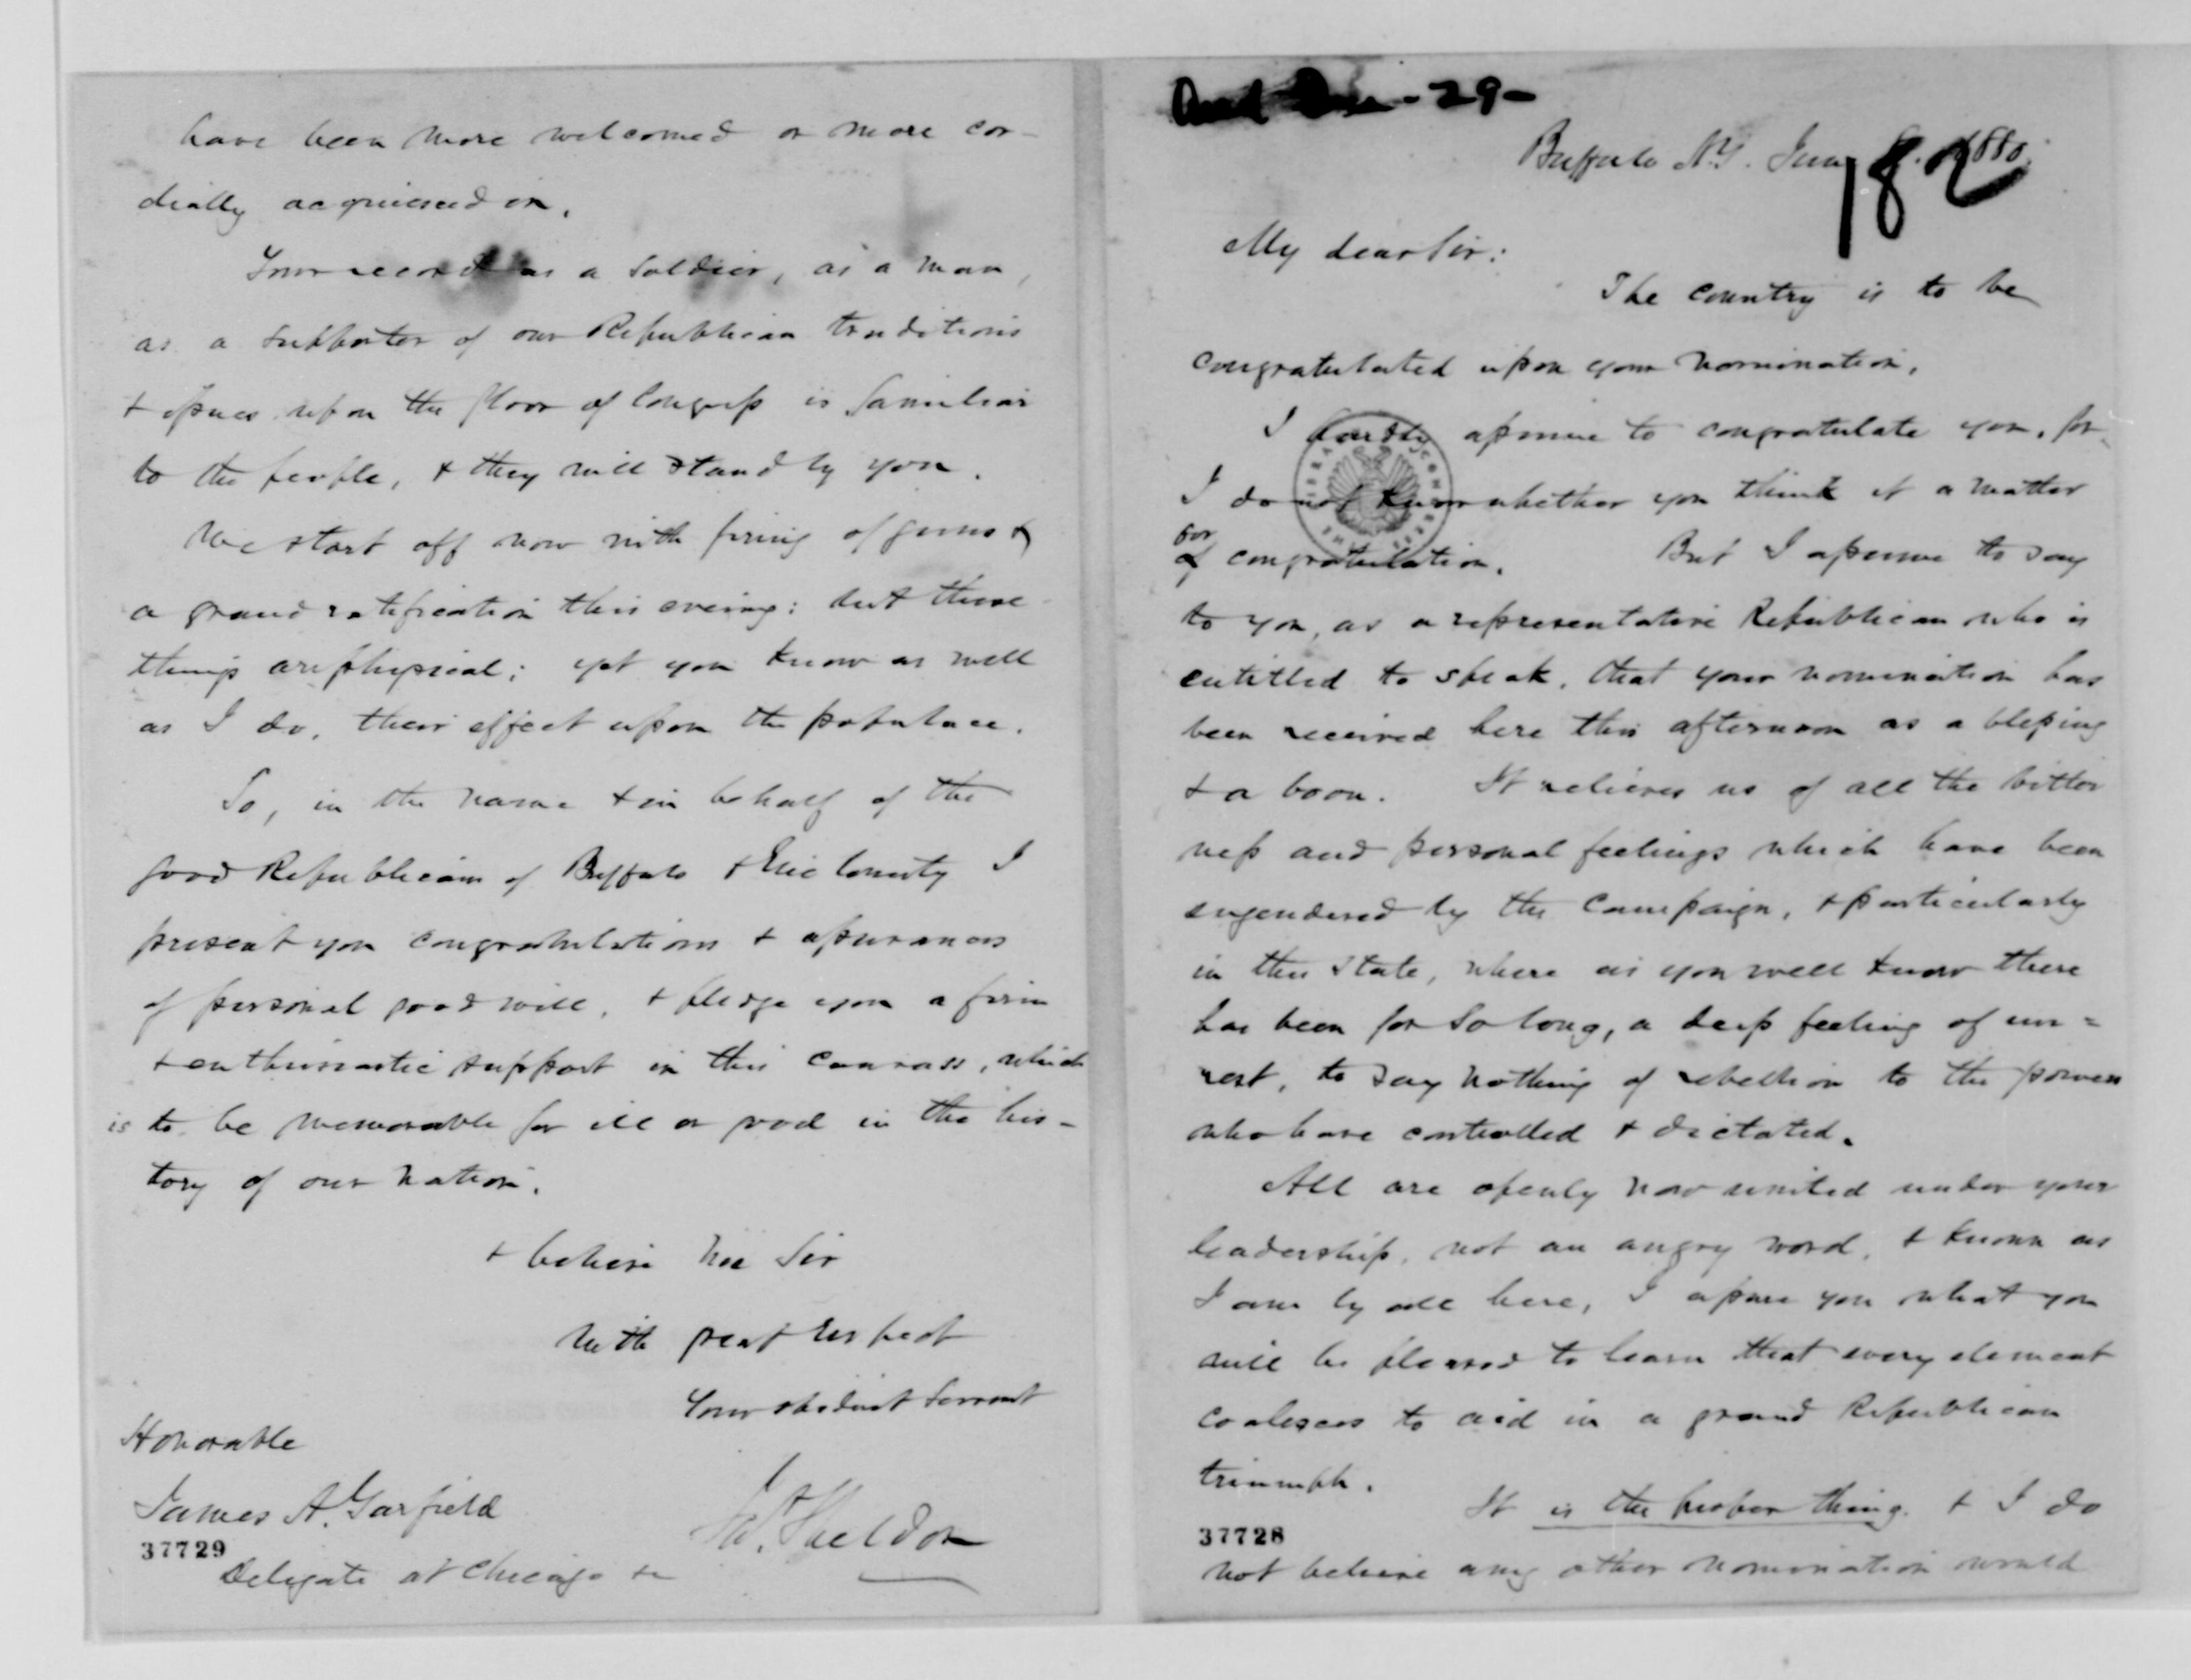 -29-
Buffalo N.Y. June 8. 1880.
182
My dear Sir:
The country is to be
congratulated upon your nomination.
I hardly assume to congratulate you, for
I do not know whether you think it a matter
for
of congratulation. But I assume to say
to you, as a representative Republican who is
entitled to speak, that your nomination has
been received here this afternoon as a blessing
& a boon. It relieves us of all the bitter
ness and personal feelings which have been
engendered by the campaign, & particularly
in this State, where as you well know there
has been for so long, a deep feeling of un=
rest, to say nothing of rebellion to the powers
who have controlled & dictated.
All are openly now united under your
leadership, not an angry word, & known as
I am by all here, I assure you what you
will be pleased to learn that every element
coalesces to aid in a grand Republican
triumph.
It is the proper thing. & I do
37728
not believe any other nomination would
have been more welcomed or more cor-
dially acquiesced in.
Your record as a soldier, as a man,
as a supporter of our Republican traditions
& issues upon the floor of Congress is familiar
to the people, & they will stand by you.
We start off now with firing of guns &
a grand ratification this evening: but these
things are physical; yet you know as well
as I do, their effect upon the populace.
So, in the name & in behalf of the
good Republicans of Buffalo & Erie County I
present you congratulations & assurances
of personal good will, & pledge you a firm
& enthusiastic support in this canvass, which
is to be memorable for ill or good in the his-
tory of our nation.
& believe me Sir
With great respect
Your obedient Servant
Sheldon
Honorable
James A. Garfield
37729
Delegate at Chicago